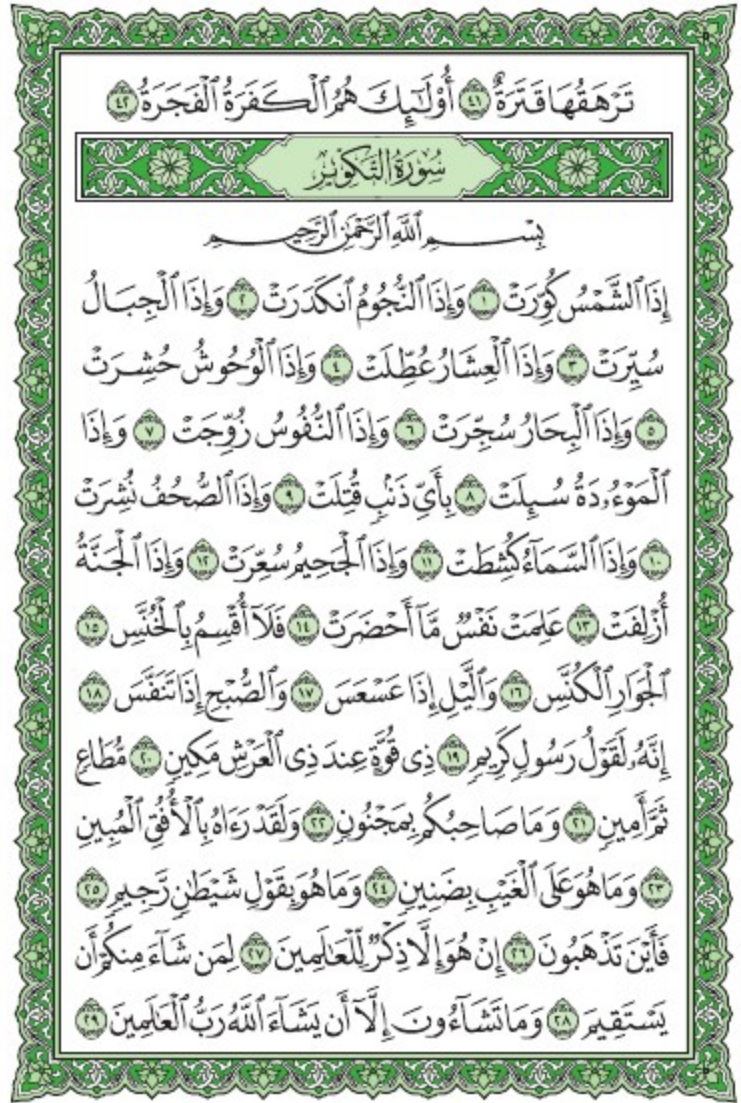 تَرْهَقُهَا قَتَرَةٌ ٤١ أُوْلَٰٓئِكَ هُمُ ٱلْكَفَرَةُ ٱلْفَجَرَةُ ٤٢
سُورَةُ التَّكْوِيرِ
بِسْمِ ٱللَّهِ ٱلرَّحْمَٰنِ ٱلرَّحِيمِ
إِذَا ٱلشَّمْسُ كُوِّرَتْ ١ وَإِذَا ٱلنُّجُومُ ٱنكَدَرَتْ ٢ وَإِذَا ٱلْجِبَالُ
سُيِّرَتْ ٣ وَإِذَا ٱلْعِشَارُ عُطِّلَتْ ٤ وَإِذَا ٱلْوُحُوشُ حُشِرَتْ
٥ وَإِذَا ٱلْبِحَارُ سُجِّرَتْ ٦ وَإِذَا ٱلنُّفُوسُ زُوِّجَتْ ٧ وَإِذَا
ٱلْمَوْءُۥدَةُ سُئِلَتْ ٨ بِأَيِّ ذَنۢبٍ قُتِلَتْ ٩ وَإِذَا ٱلصُّحُفُ نُشِرَتْ
١٠ وَإِذَا ٱلسَّمَآءُ كُشِطَتْ ١١ وَإِذَا ٱلْجَحِيمُ سُعِّرَتْ ١٢ وَإِذَا ٱلْجَنَّةُ
أُزْلِفَتْ ١٣ عَلِمَتْ نَفْسٌ مَّآ أَحْضَرَتْ ١٤ فَلَآ أُقْسِمُ بِٱلْخُنَّسِ ١٥
ٱلْجَوَارِ ٱلْكُنَّسِ ١٦ وَٱلَّيْلِ إِذَا عَسْعَسَ ١٧ وَٱلصُّبْحِ إِذَا تَنَفَّسَ ١٨
إِنَّهُۥ لَقَوْلُ رَسُولٍ كَرِيمٍ ١٩ ذِى قُوَّةٍ عِندَ ذِى ٱلْعَرْشِ مَكِينٍ ٢٠ مُّطَاعٍ
ثَمَّ أَمِينٍ ٢١ وَمَا صَاحِبُكُم بِمَجْنُونٍ ٢٢ وَلَقَدْ رَءَاهُ بِٱلْأُفُقِ ٱلْمُبِينِ
٢٣ وَمَا هُوَ عَلَى ٱلْغَيْبِ بِضَنِينٍ ٢٤ وَمَا هُوَ بِقَوْلِ شَيْطَٰنٍ رَّجِيمٍ ٢٥
فَأَيْنَ تَذْهَبُونَ ٢٦ إِنْ هُوَ إِلَّا ذِكْرٌ لِّلْعَٰلَمِينَ ٢٧ لِمَن شَآءَ مِنكُمْ أَن
يَسْتَقِيمَ ٢٨ وَمَا تَشَآءُونَ إِلَّآ أَن يَشَآءَ ٱللَّهُ رَبُّ ٱلْعَٰلَمِينَ ٢٩